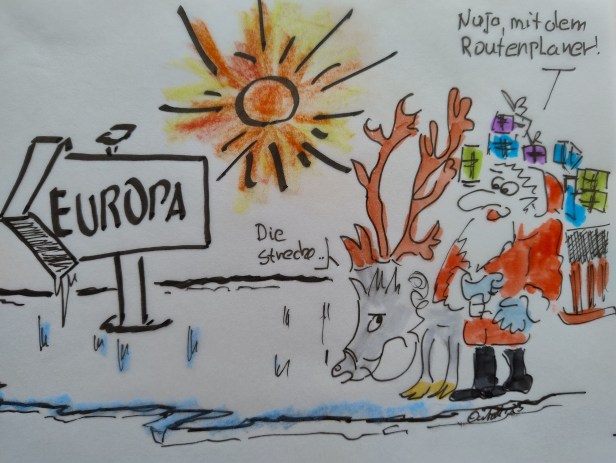 Naja, mit dem
Routenplaner!
EUROPA
Die
Strecke..